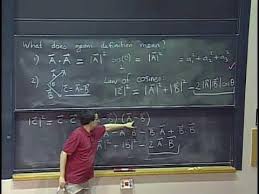 What does geom. definition mean?
1) A⃗·A⃗ = |A⃗|² cos(0) = |A⃗|² = a₁²+a₂²+a₃²
2) A⃗ B⃗ θ C⃗ = A⃗-B⃗ Law of cosines:
|C⃗|² = |A⃗|²+|B⃗|²-2|A⃗||B⃗|cosθ
|C⃗|² = C⃗·C⃗ = (A⃗-B⃗)
- B⃗·A⃗ + B⃗·B⃗
- 2A⃗·B⃗